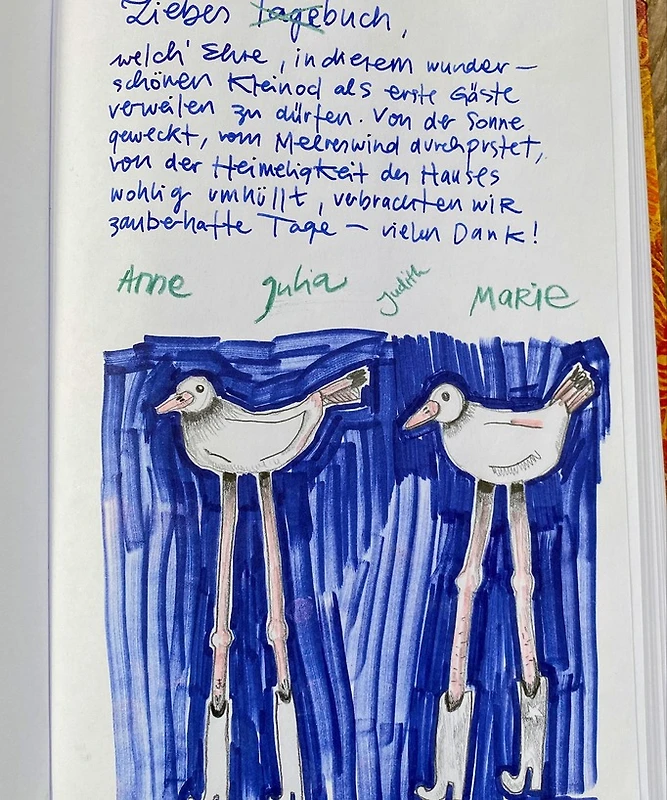 Liebes Tagebuch,
welch' Ehre, in diesem wunder-
schönen Kleinod als erste Gäste
verweilen zu dürfen. Von der Sonne
geweckt, vom Meereswind durchpustet,
von der Heimeligkeit des Hauses
wohlig umhüllt, verbrachten wir
zauberhafte Tage – vielen Dank!
Anne Julia Judith Marie